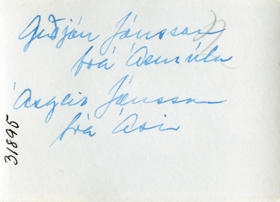 Guðjón Jónsson
frá Ásmúla
Ásgeir Jónsson
frá Ási
31895